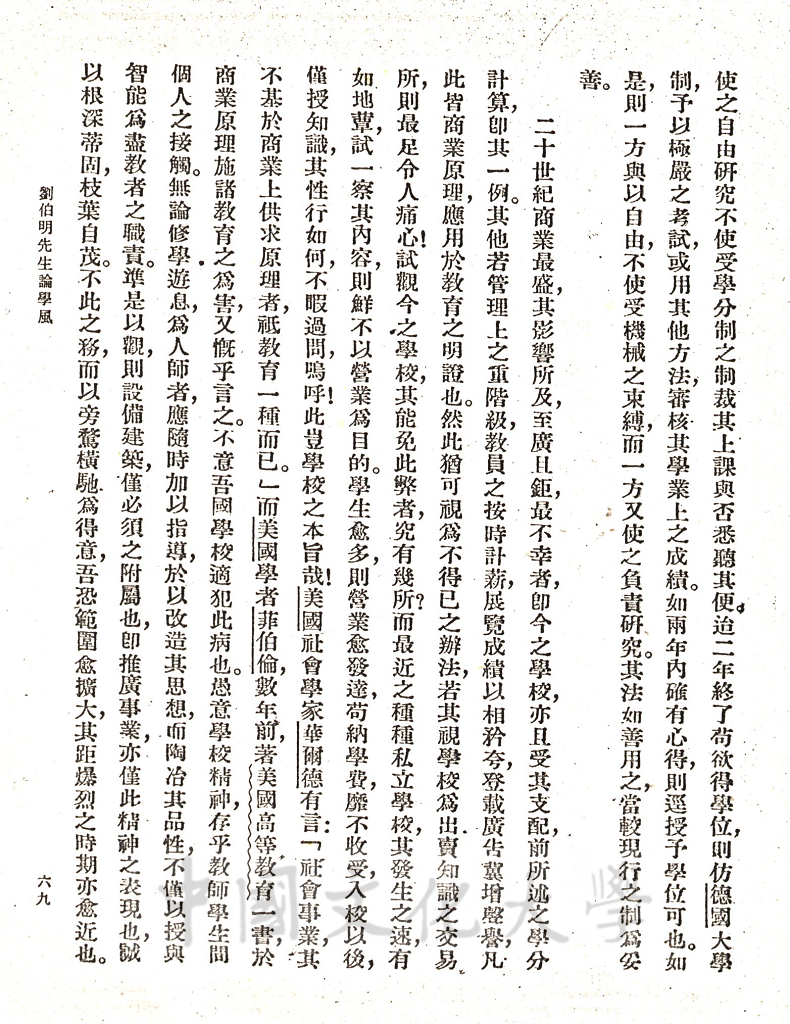 使之自由研究不使受學分制之制裁其上課與否悉聽其便。迨二年終了苟欲得學位，則仿德國大學
制，予以極嚴之考試，或用其他方法，審核其學業上之成績。如兩年內確有心得，則逕授予學位可也。如
是，則一方與以自由，不使受機械之束縛，而一方又使之負責研究。其法如善用之，當較現行之制爲妥
善。
二十世紀商業最盛，其影響所及，至廣且鉅，最不幸者，卽今之學校，亦且受其支配，前所述之學分
計算，卽其一例。其他若管理上之重階級，教員之按時計薪，展覽成績以相矜夸，登載廣告冀增聲譽，凡
此皆商業原理，應用於教育之明證也。然此猶可視爲不得已之辦法，若其視學校爲出賣知識之交易
所，則最足令人痛心！試觀今之學校，其能免此弊者，究有幾所？而最近之種種私立學校，其發生之速，有
如地蕈，試一察其內容，則鮮不以營業爲目的。學生愈多，則營業愈發達，苟納學費，靡不收受，入校以後，
僅授知識，其性行如何，不暇過問，嗚呼！此豈學校之本旨哉！美國社會學家華爾德有言：「社會事業，其
不基於商業上供求原理者，祗教育一種而已。」而美國學者菲伯倫，數年前，著美國高等教育一書，於
商業原理施諸教育之爲害，又慨乎言之。不意吾國學校適犯此病也。愚意學校精神，存乎教師學生間
個人之接觸。無論修學遊息，爲人師者，應隨時加以指導，於以改造其思想，而陶冶其品性，不僅以授與
智能爲盡教者之職責。準是以觀，則設備建築，僅必須之附屬也，卽推廣事業，亦僅此精神之表現也，誠
以根深蒂固，枝葉自茂。不此之務，而以旁騖橫馳爲得意，吾恐範圍愈擴大，其距爆烈之時期亦愈近也。
劉伯明先生論學風
六九
中國文化大學